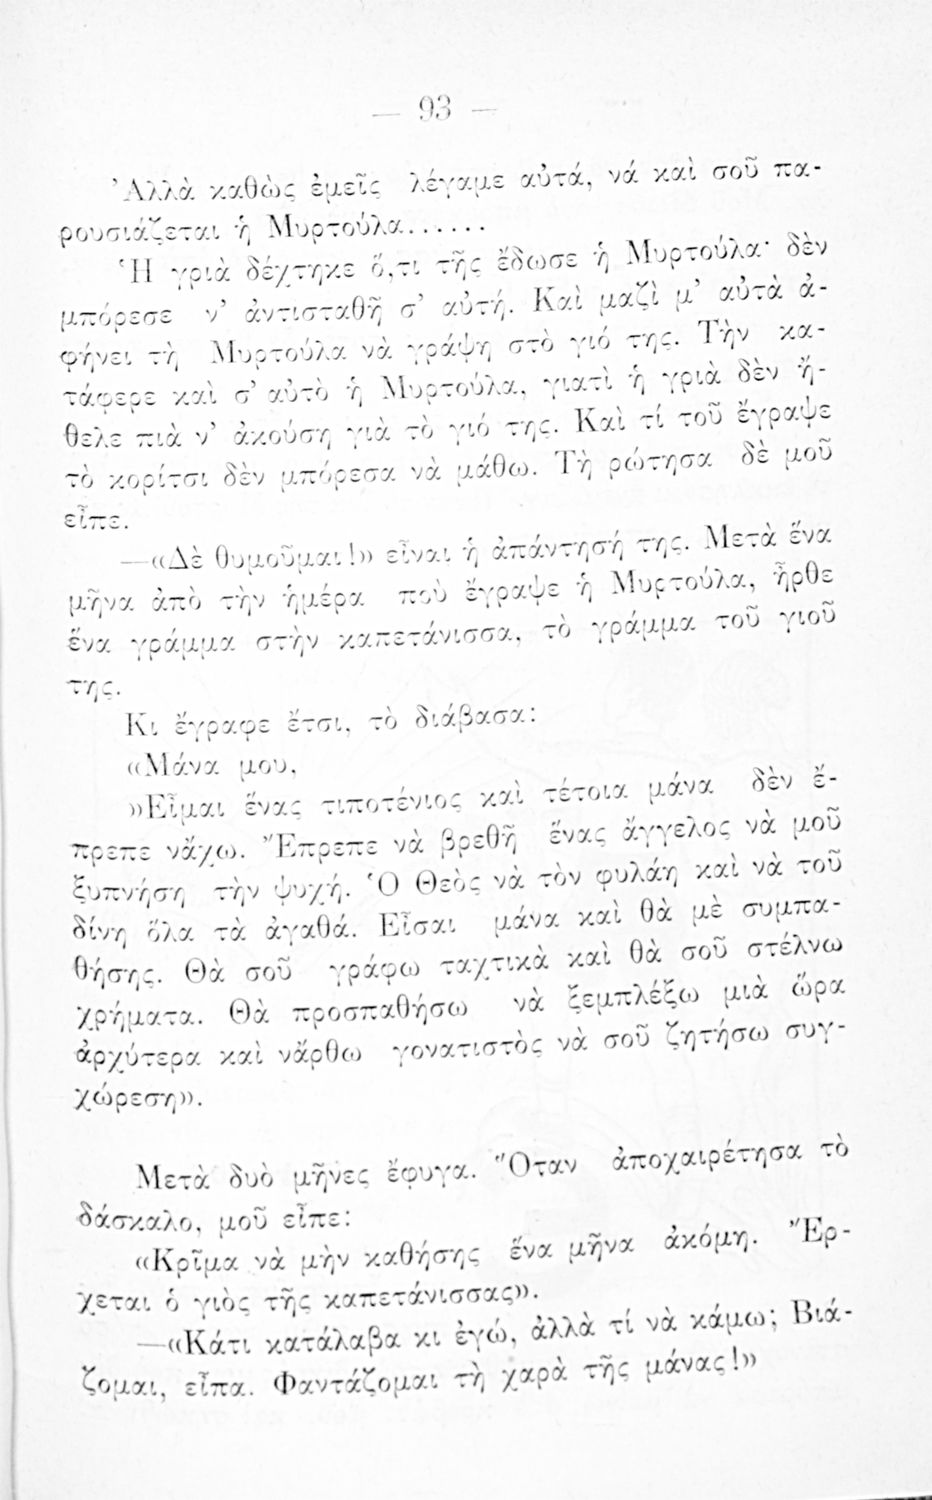 — 93 —
Ἀλλὰ καθὼς ἐμεῖς λέγαμε αὐτά, νά καὶ σοῦ πα-
ρουσιάζεται ἡ Μυρτούλα......
Ἡ γριὰ δέχτηκε ὅ,τι τῆς ἔδωσε ἡ Μυρτούλα· δὲν
μπόρεσε ν' ἀντισταθῆ σ' αὐτή. Καὶ μαζὶ μ' αὐτὰ ἀ-
φήνει τὴ Μυρτούλα νὰ γράψη στὸ γιό της. Τὴν κα-
τάφερε καὶ σ' αὐτὸ ἡ Μυρτούλα, γιατὶ ἡ γριὰ δὲν ἤ-
θελε πιὰ ν' ἀκούση γιὰ τὸ γιό της. Καὶ τί τοῦ ἔγραψε
τὸ κορίτσι δὲν μπόρεσα νὰ μάθω. Τὴ ρώτησα δὲ μοῦ
εἶπε.
—«Δὲ θυμοῦμαι!» εἶναι ἡ ἀπάντησή της. Μετὰ ἕνα
μῆνα ἀπὸ τὴν ἡμέρα ποὺ ἔγραψε ἡ Μυρτούλα, ἦρθε
ἕνα γράμμα στὴν καπετάνισσα, τὸ γράμμα τοῦ γιοῦ
της.
Κι ἔγραφε ἔτσι, τὸ διάβασα:
«Μάνα μου,
»Εἶμαι ἕνας τιποτένιος καὶ τέτοια μάνα δὲν ἔ-
πρεπε νἄχω. Ἔπρεπε νὰ βρεθῆ ἕνας ἄγγελος νὰ μοῦ
ξυπνήση τὴν ψυχή. Ὁ Θεὸς νὰ τὸν φυλάη καὶ νὰ τοῦ
δίνη ὅλα τὰ ἀγαθά. Εἶσαι μάνα καὶ θὰ μὲ συμπα-
θήσης. Θὰ σοῦ γράφω ταχτικὰ καὶ θὰ σοῦ στέλνω
χρήματα. Θὰ προσπαθήσω νὰ ξεμπλέξω μιὰ ὥρα
ἀρχύτερα καὶ νἄρθω γονατιστὸς νὰ σοῦ ζητήσω συγ-
χώρεση».
Μετὰ δυὸ μῆνες ἔφυγα. Ὅταν ἀποχαιρέτησα τὸ
δάσκαλο, μοῦ εἶπε:
«Κρῖμα νὰ μὴν καθήσης ἕνα μῆνα ἀκόμη. Ἔρ-
χεται ὁ γιὸς τῆς καπετάνισσας».
—«Κάτι κατάλαβα κι ἐγώ, ἀλλὰ τί νὰ κάμω; Βιά-
ζομαι, εἶπα. Φαντάζομαι τὴ χαρὰ τῆς μάνας!»